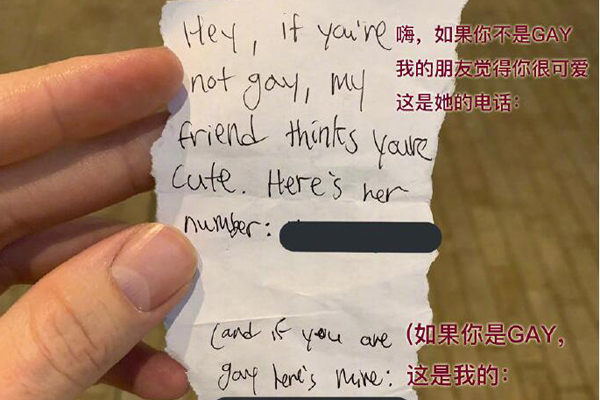 Hey, if you're
嗨，如果你不是GAY
not gay, my
我的朋友觉得你很可爱
friend thinks you're
这是她的电话：
cute. Here's her
number:
(and if you are
(如果你是GAY，
gay here's mine:
这是我的：